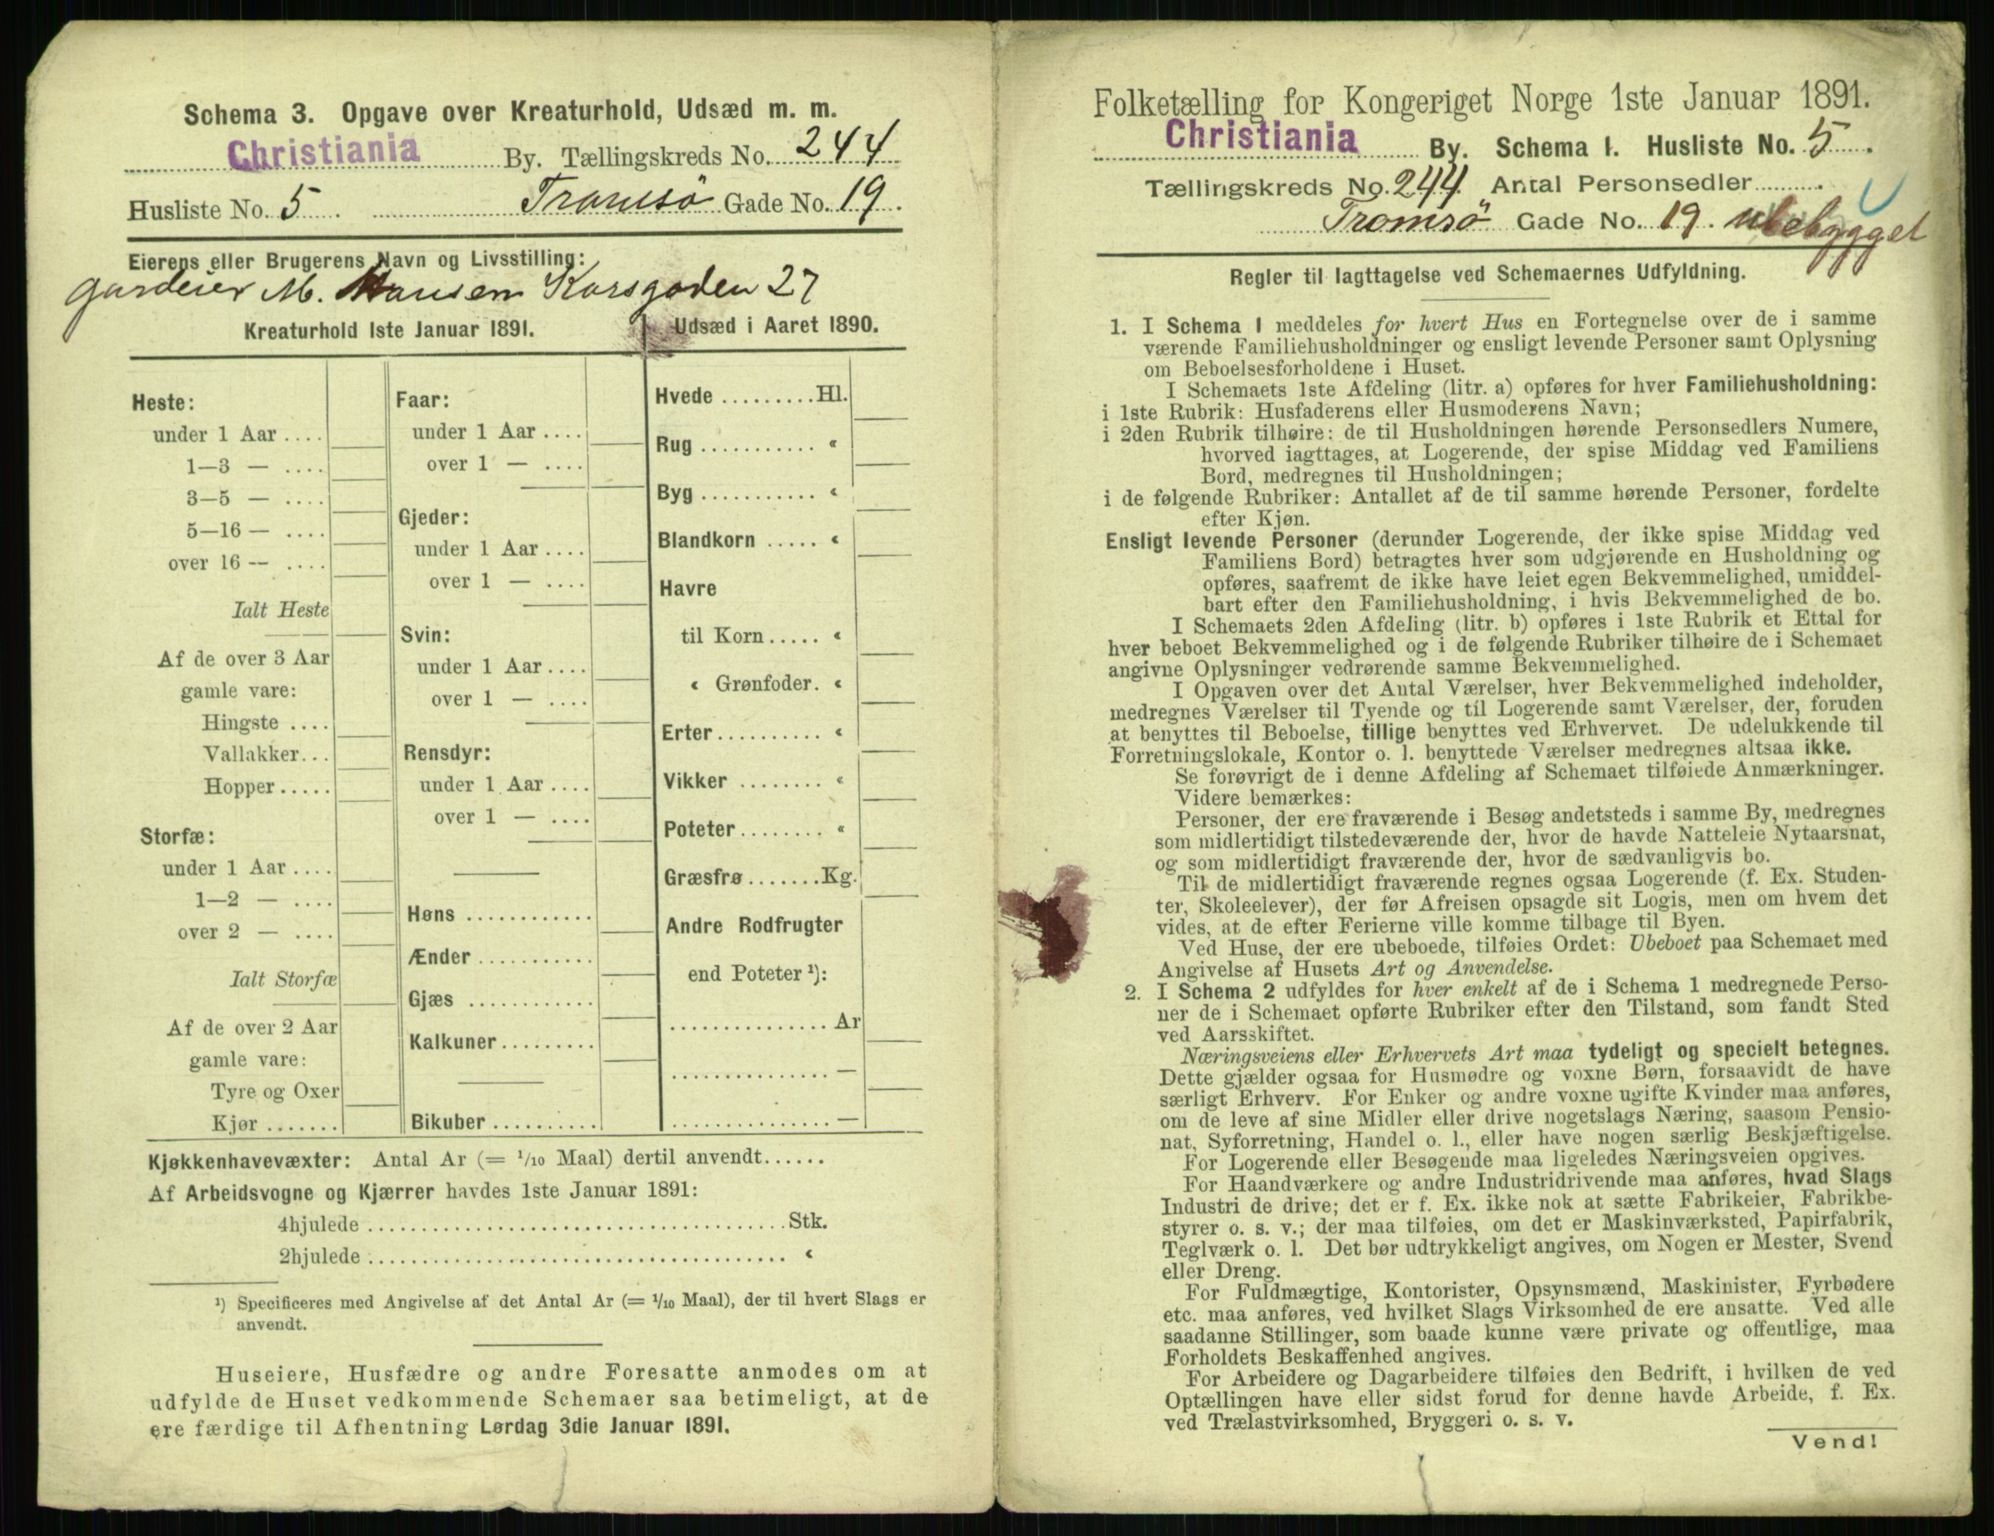 Schema 3. Opgave over Kreaturhold, Udsæd m. m.
Christiania By. Tællingskreds No. 244
Husliste No. 5 Tromsö Gade No. 19.
Eierens eller Brugerens Navn og Livsstilling:
Gardeier M. Hansen Korsgaden 27
Kreaturhold 1ste Januar 1891.
Heste:
under 1 Aar ....
1—3 — ....
3—5 — ....
5—16 — ....
over 16 — ....
Ialt Heste
Af de over 3 Aar
gamle vare:
Hingste ....
Vallakker...
Hopper .....
Storfæ:
under 1 Aar ....
1—2 — ....
over 2 — ....
Ialt Storfæ
Af de over 2 Aar
gamle vare:
Tyre og Oxer
Kjør .......
Faar:
under 1 Aar ....
over 1 — ....
Gjeder:
under 1 Aar ....
over 1 — ....
Svin:
under 1 Aar ....
over 1 — ....
Rensdyr:
under 1 Aar ....
over 1 — ....
Høns ............
Ænder ...........
Gjæs ............
Kalkuner.........
Bikuber ..........
Udsæd i Aaret 1890.
Hvede .........Hl.
Rug ........... «
Byg ........... «
Blandkorn ..... «
Havre
til Korn ..... «
« Grønfoder. «
Erter.......... «
Vikker ........ «
Poteter........ «
Græsfrø .......Kg.
Andre Rodfrugter
end Poteter ¹):
............... Ar
............... —
............... —
Kjøkkenhavevæxter: Antal Ar (= 1/10 Maal) dertil anvendt......
Af Arbeidsvogne og Kjærrer havdes 1ste Januar 1891:
4hjulede ........................................Stk.
2hjulede ........................................ «
¹) Specificeres med Angivelse af det Antal Ar (= 1/10 Maal), der til hvert Slags er
anvendt.
Huseiere, Husfædre og andre Foresatte anmodes om at
udfylde de Huset vedkommende Schemaer saa betimeligt, at de
ere færdige til Afhentning Lørdag 3die Januar 1891.
Folketælling for Kongeriget Norge 1ste Januar 1891.
Christiania By. Schema 1. Husliste No. 5.
Tællingskreds No. 244 Antal Personsedler ........ .
Tromsö Gade No. 19. ubebygget
Regler til Iagttagelse ved Schemaernes Udfyldning.
1. I Schema 1 meddeles for hvert Hus en Fortegnelse over de i samme
værende Familiehusholdninger og ensligt levende Personer samt Oplysning
om Beboelsesforholdene i Huset.
I Schemaets 1ste Afdeling (litr. a) opføres for hver Familiehusholdning:
i 1ste Rubrik: Husfaderens eller Husmoderens Navn;
i 2den Rubrik tilhøire: de til Husholdningen hørende Personsedlers Numere,
hvorved iagttages, at Logerende, der spise Middag ved Familiens
Bord, medregnes til Husholdningen;
i de følgende Rubriker: Antallet af de til samme hørende Personer, fordelte
efter Kjøn.
Ensligt levende Personer (derunder Logerende, der ikke spise Middag ved
Familiens Bord) betragtes hver som udgjørende en Husholdning og
opføres, saafremt de ikke have leiet egen Bekvemmelighed, umiddel-
bart efter den Familiehusholdning, i hvis Bekvemmelighed de bo.
I Schemaets 2den Afdeling (litr. b) opføres i 1ste Rubrik et Ettal for
hver beboet Bekvemmelighed og i de følgende Rubriker tilhøire de i Schemaet
angivne Oplysninger vedrørende samme Bekvemmelighed.
I Opgaven over det Antal Værelser, hver Bekvemmelighed indeholder,
medregnes Værelser til Tyende og til Logerende samt Værelser, der, foruden
at benyttes til Beboelse, tillige benyttes ved Erhvervet. De udelukkende til
Forretningslokale, Kontor o. l. benyttede Værelser medregnes altsaa ikke.
Se forøvrigt de i denne Afdeling af Schemaet tilføiede Anmærkninger.
Videre bemærkes:
Personer, der ere fraværende i Besøg andetsteds i samme By, medregnes
som midlertidigt tilstedeværende der, hvor de havde Natteleie Nytaarsnat,
og som midlertidigt fraværende der, hvor de sædvanligvis bo.
Til de midlertidigt fraværende regnes ogsaa Logerende (f. Ex. Studen-
ter, Skoleelever), der før Afreisen opsagde sit Logis, men om hvem det
vides, at de efter Ferierne ville komme tilbage til Byen.
Ved Huse, der ere ubeboede, tilføies Ordet: Ubeboet paa Schemaet med
Angivelse af Husets Art og Anvendelse.
2. I Schema 2 udfyldes for hver enkelt af de i Schema 1 medregnede Perso-
ner de i Schemaet opførte Rubriker efter den Tilstand, som fandt Sted
ved Aarsskiftet.
Næringsveiens eller Erhvervets Art maa tydeligt og specielt betegnes.
Dette gjælder ogsaa for Husmødre og voxne Børn, forsaavidt de have
særligt Erhverv. For Enker og andre voxne ugifte Kvinder maa anføres,
om de leve af sine Midler eller drive nogetslags Næring, saasom Pensio-
nat, Syforretning, Handel o. l., eller have nogen særlig Beskjæftigelse.
For Logerende eller Besøgende maa ligeledes Næringsveien opgives.
For Haandværkere og andre Industridrivende maa anføres, hvad Slags
Industri de drive; det er f. Ex. ikke nok at sætte Fabrikeier, Fabrikbe-
styrer o. s. v.; der maa tilføies, om det er Maskinværksted, Papirfabrik,
Teglværk o. l. Det bør udtrykkeligt angives, om Nogen er Mester, Svend
eller Dreng.
For Fuldmægtige, Kontorister, Opsynsmænd, Maskinister, Fyrbødere
etc. maa anføres, ved hvilket Slags Virksomhed de ere ansatte. Ved alle
saadanne Stillinger, som baade kunne være private og offentlige, maa
Forholdets Beskaffenhed angives.
For Arbeidere og Dagarbeidere tilføies den Bedrift, i hvilken de ved
Optællingen have eller sidst forud for denne havde Arbeide, f. Ex.
ved Trælastvirksomhed, Bryggeri o. s. v.
Vend!